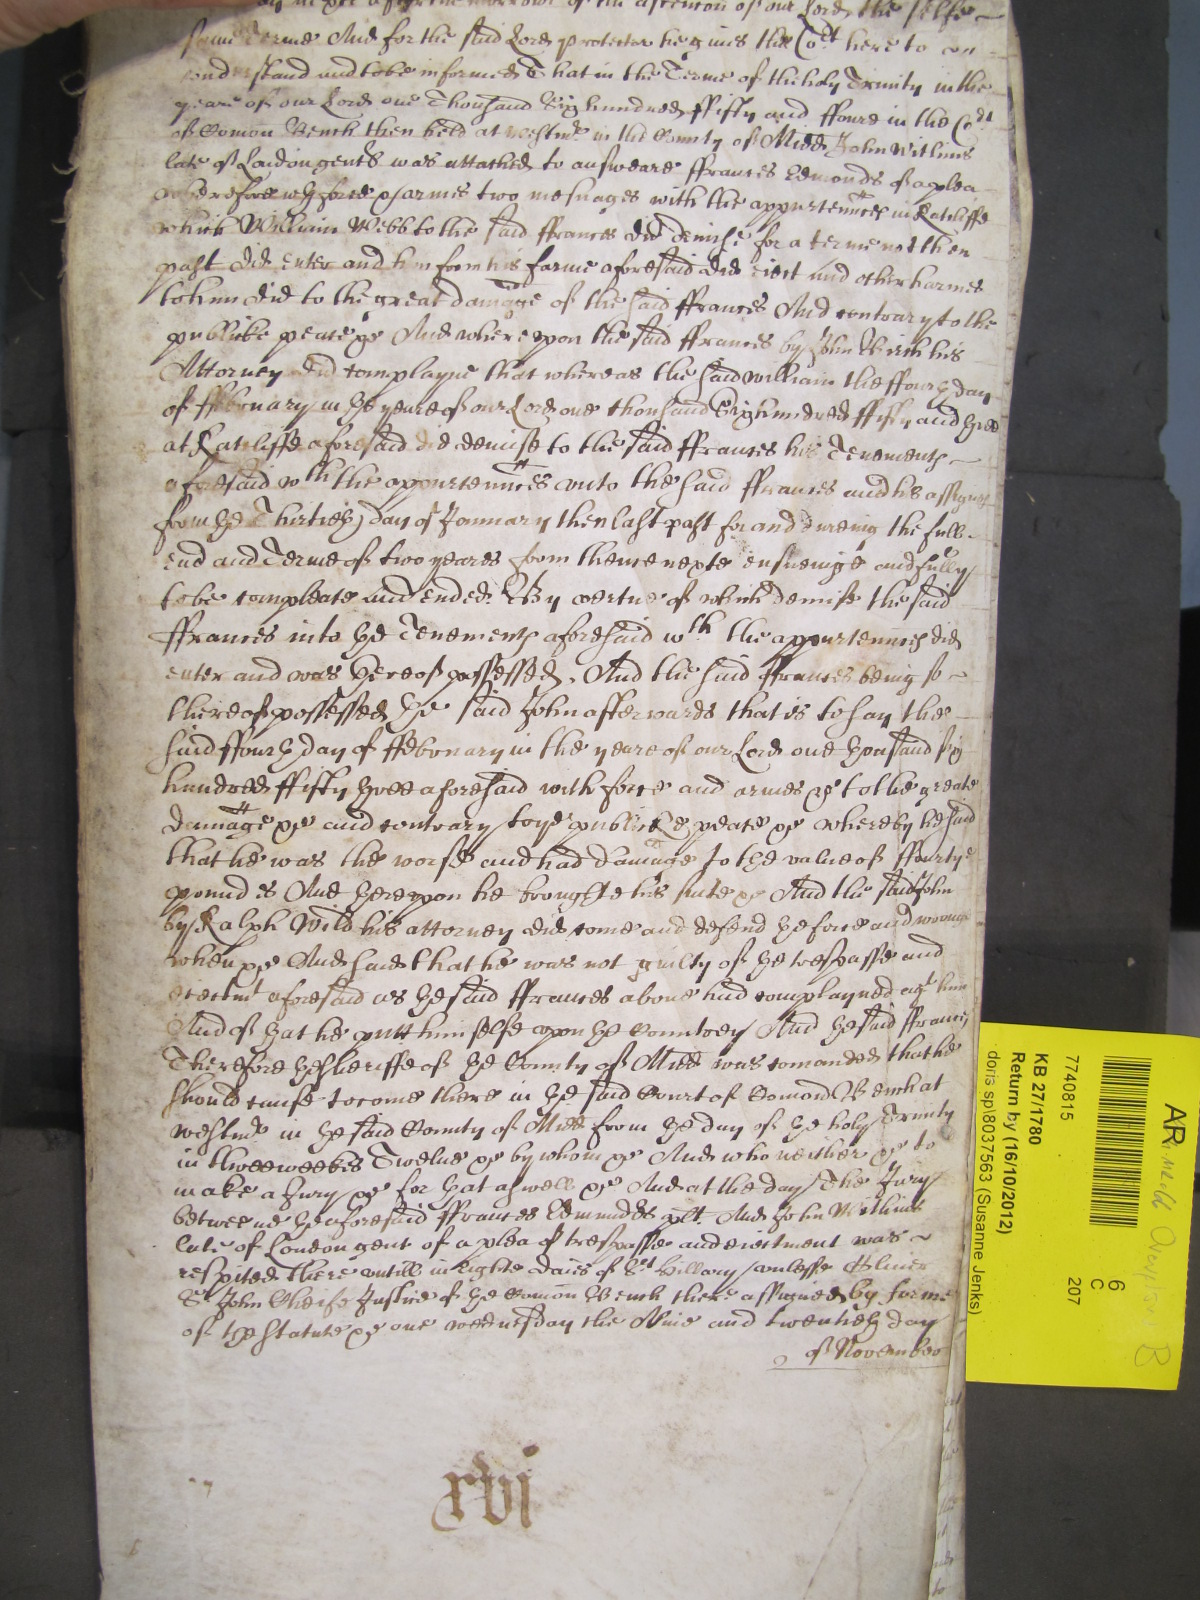 after the morrow of the ascencon of our Lord the selfe
same Terme And for the said Lord protector he gives the Cort here to un
understand and to be informed That in the Terme of the holy Trinity in the
yeare of our Lord one Thousand Six hundred ffifty and ffoure in the Cort
of Comon Bench then held at Westmr in the County of Midd John Witkins
late of London gent was attached to answeare ffrances Edmonds of a plea
wherefore wth force & armes two mesuages with the appurtennces in Ratcliffe
which William Webb to the said ffrances did demise for a terme not then
past did enter and him from his farme aforesaid did eiect and other harmes
to him did to the great damage of the said ffrances And contrary to the
publike peace &c And whereupon the said ffrances by John his
Attorney did complayne that whereas the said William the ffourth day
of ffebruary in the yeare of our Lord one thousand Six hundred ffifty and three
at Ratcliffe aforesaid did demise to the said ffrances his Tenements
aforesaid wth the appurtennces unto the said ffrances and his assignes
from the Thirtieth day of January then last past for and dureing the full
End and Terme of two yeares from thence nexte ensueinge and fully
to be compleate and Ended By vertue of which demise the said
ffrances into the Tenements aforesaid wth the appurtennces did
enter and was thereof possessed, And the said ffrances being so
thereof possessed the said John afterwards that is to say the
said ffourth day of ffebruary in the yeare of our Lord one thousand six
hundred ffifty three aforesaid with force and armes &c to the greate
damage &c and contrary to ye publicke peace &c whereby he said
that he was the worse and had damage to the value of ffourty
pounds And thereupon he broughte his suite &c And the said John
by Ralph Wild his attorney did come and defend the force and wronge
when &c And said that he was not guilty of the trespasse and
eiectmt aforesaid as the said ffrances above had complayned agt him
And of that he putt himselfe upon the Countrey And the said ffrances
Therefore the Sheriffe of the County of Midd was comanded that he
should cause to come there in the said Court of Comon Bench at
Westmr in the said County of Midd from the day of the holy Trinity
in three weekes Twelve &c by whom &c And who neither &c to
make a Jury &c for that aswell &c And at the day The Jury
betweene the aforesaid ffrances Edmunds plt And John Witkins
late of London gent of a plea of trespasse and eiectment was
respited there untill in Eighte daies of St Hillary unlesse Oliver
St John Cheife Justice of the Comon Bench there assigned by forme
of the Statute &c one wednesday the Nine and twentieth day
of November
xvi
AR
B
6
C
207
7740815
KB 27/1780
Return by (16/10/2012)
doris sp\8037563 (Susanne Jenks)